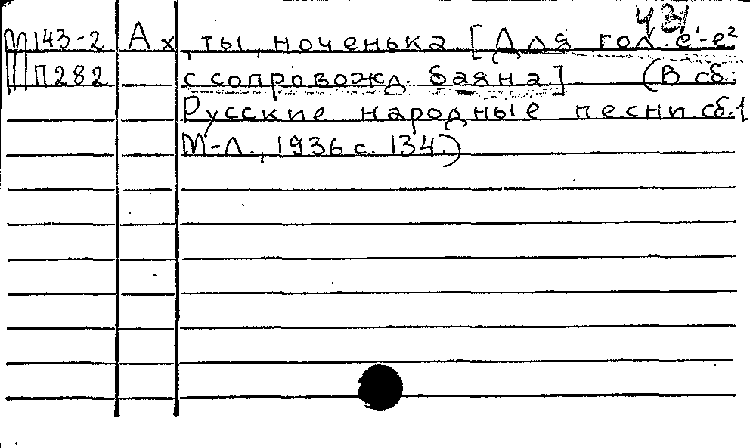 431
М 143-2 Ах, ты, ноченька [Для гол. e¹-e²
П282 с сопровожд. баяна] (В сб.:
Русские народные песни. сб.1
М-Л., 1936 с. 134.)